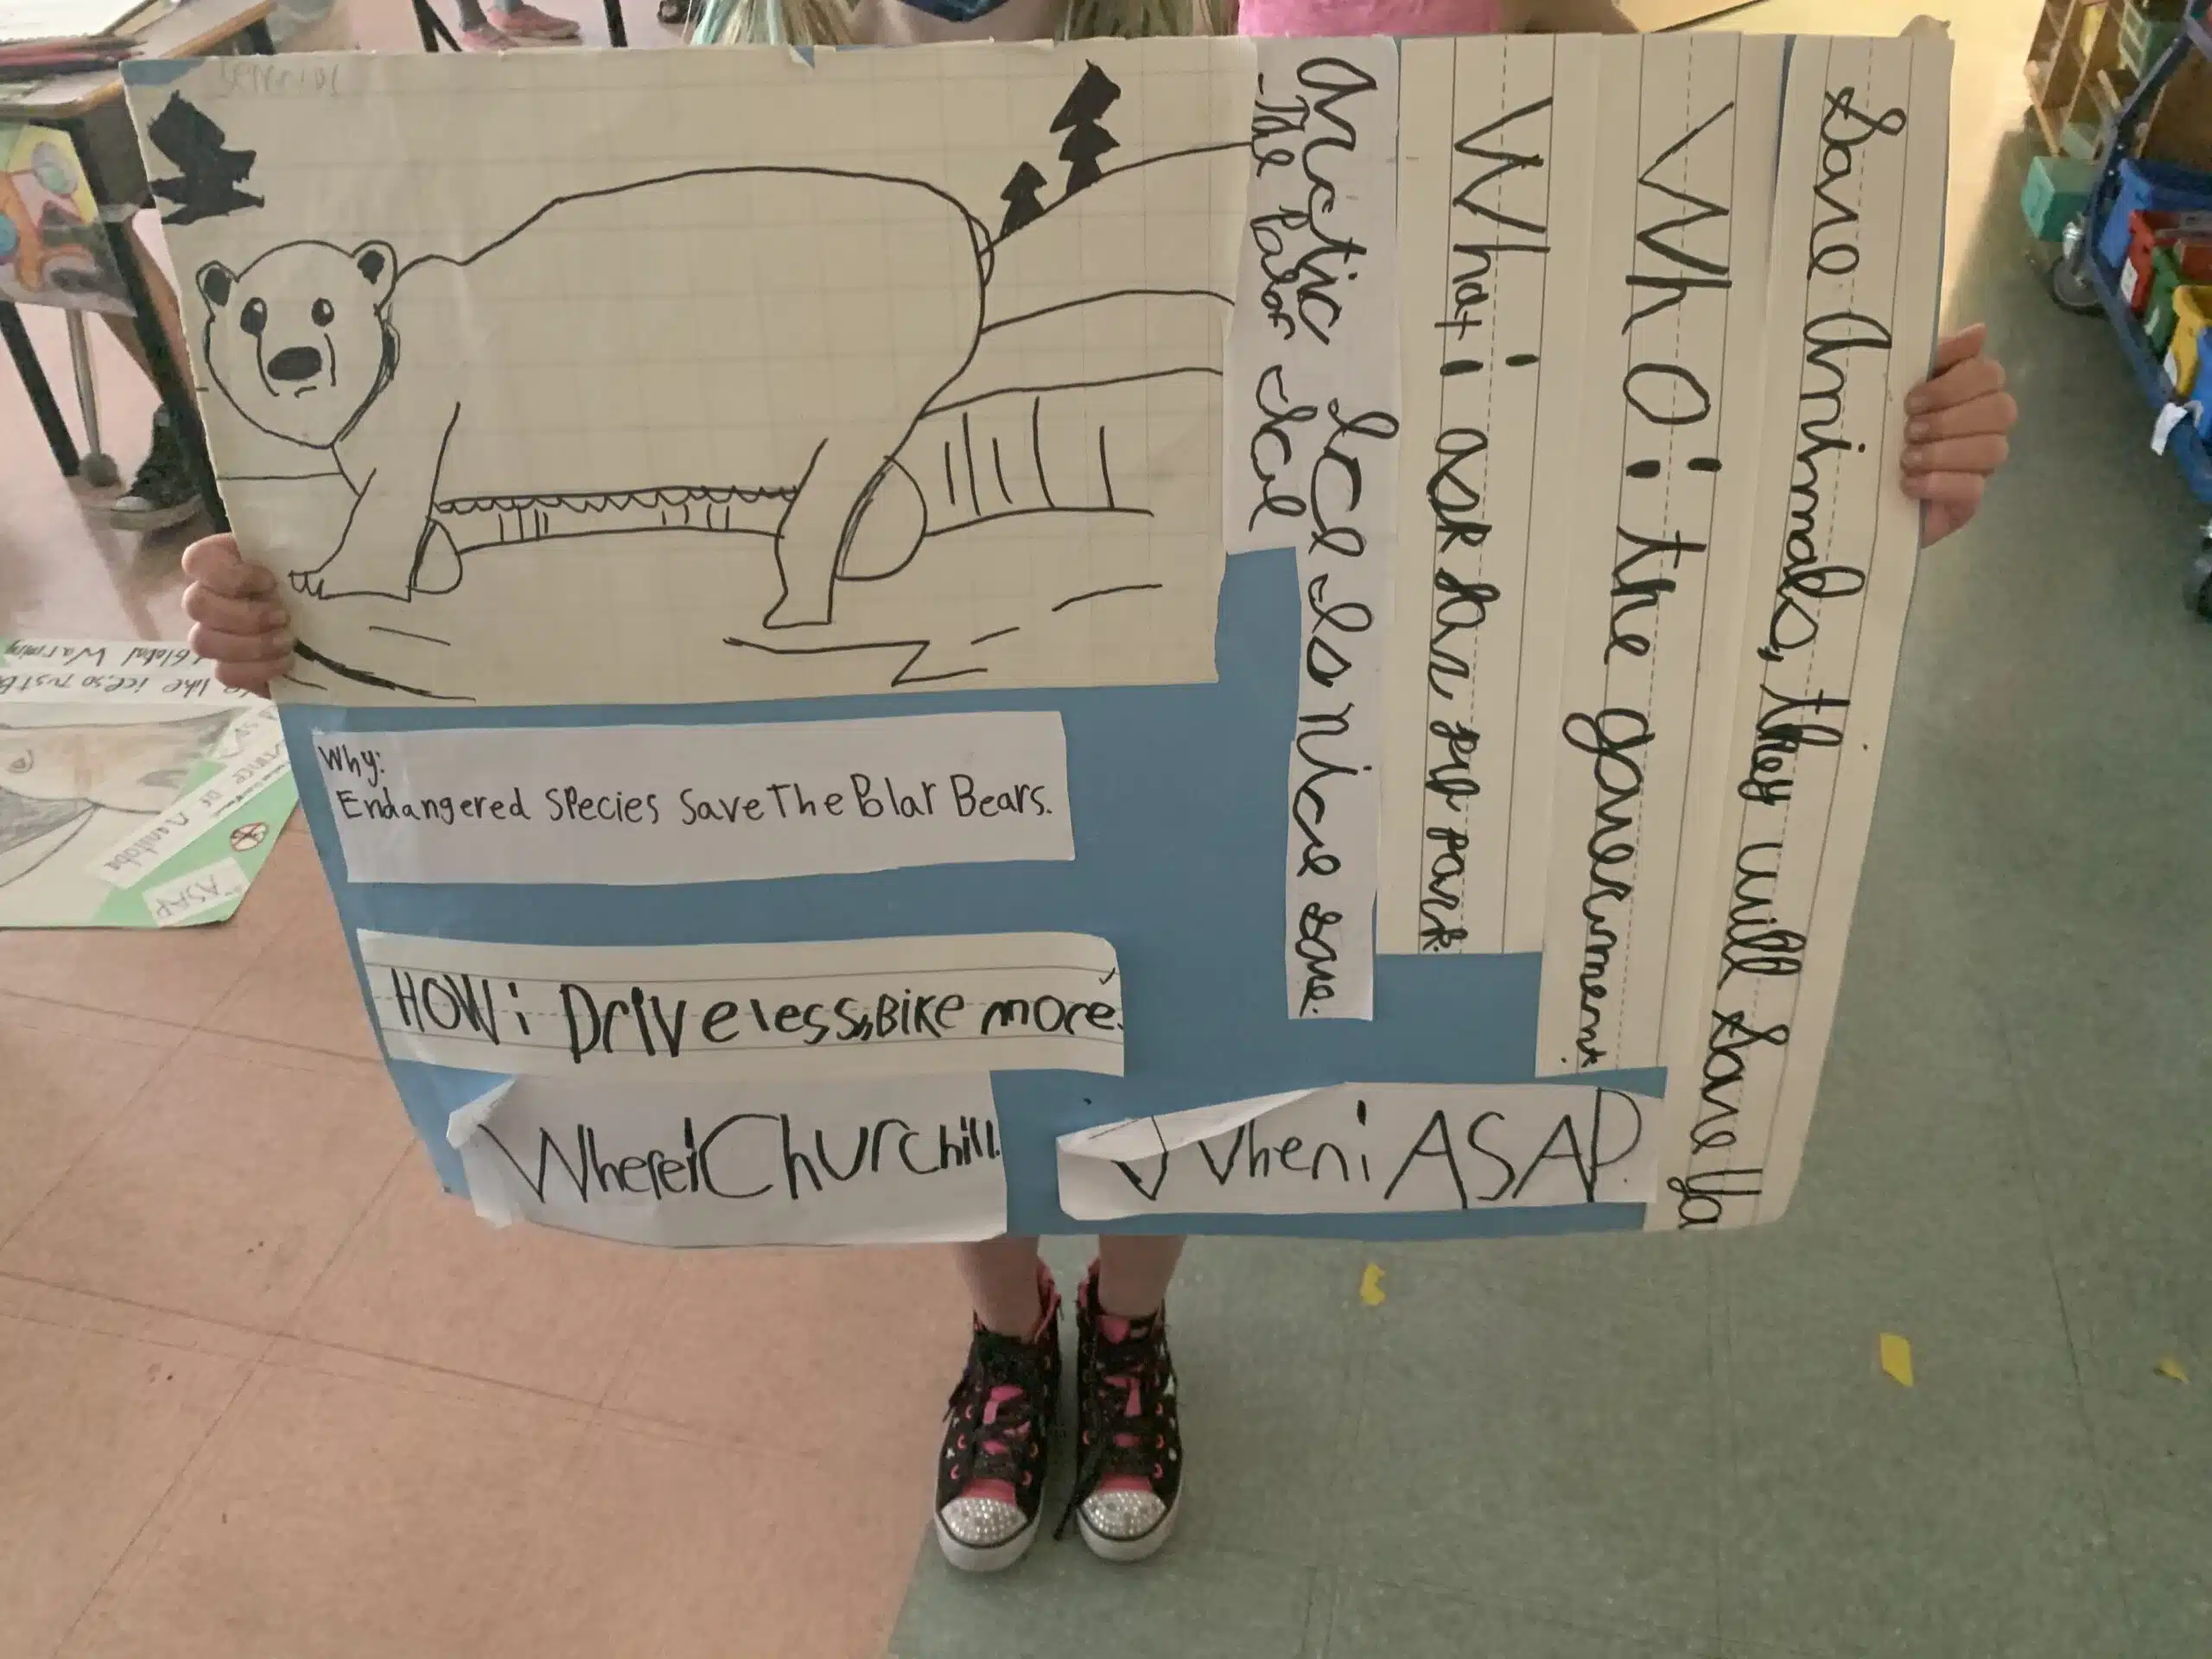 Save Animals, they will save ya
Who: the government.
What: ask for pup park.
Arctic Ice Is Nice save
The Polar Ice
Why:
Endangered Species Save The Polar Bears.
HOW: Drive less, BIKE more.
Where: Churchill.
When: ASAP.
Global Warming
like ice, so Just B
Manitoba
ASAP